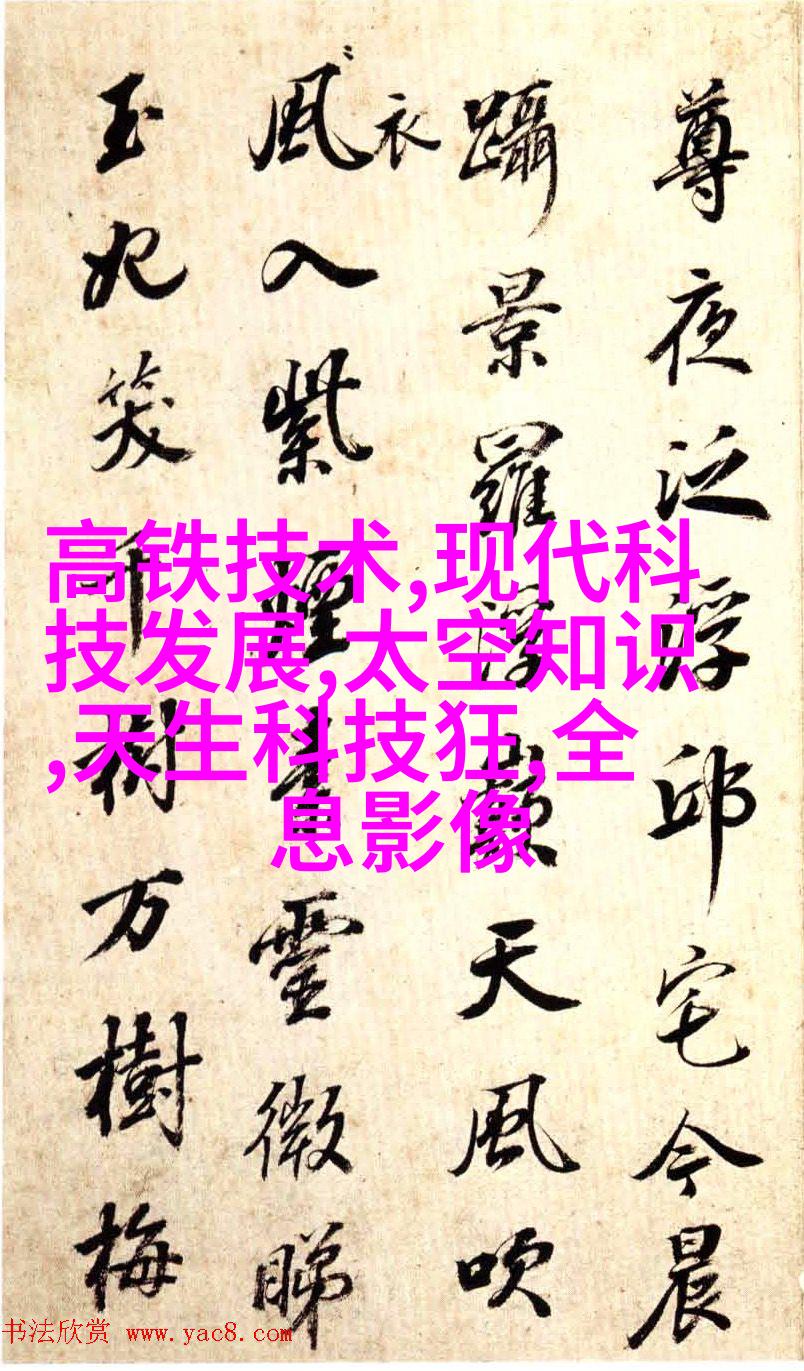 尊夜泛浮邱宅今晨
躡景羅浮巔天風吹
衣
風入紫煙靈微睇
玉妃笑千樹万樹梅
高铁技术,现代科
技发展,太空知识
,天生科技狂,全
息影像
书法欣赏 www.yac8.com